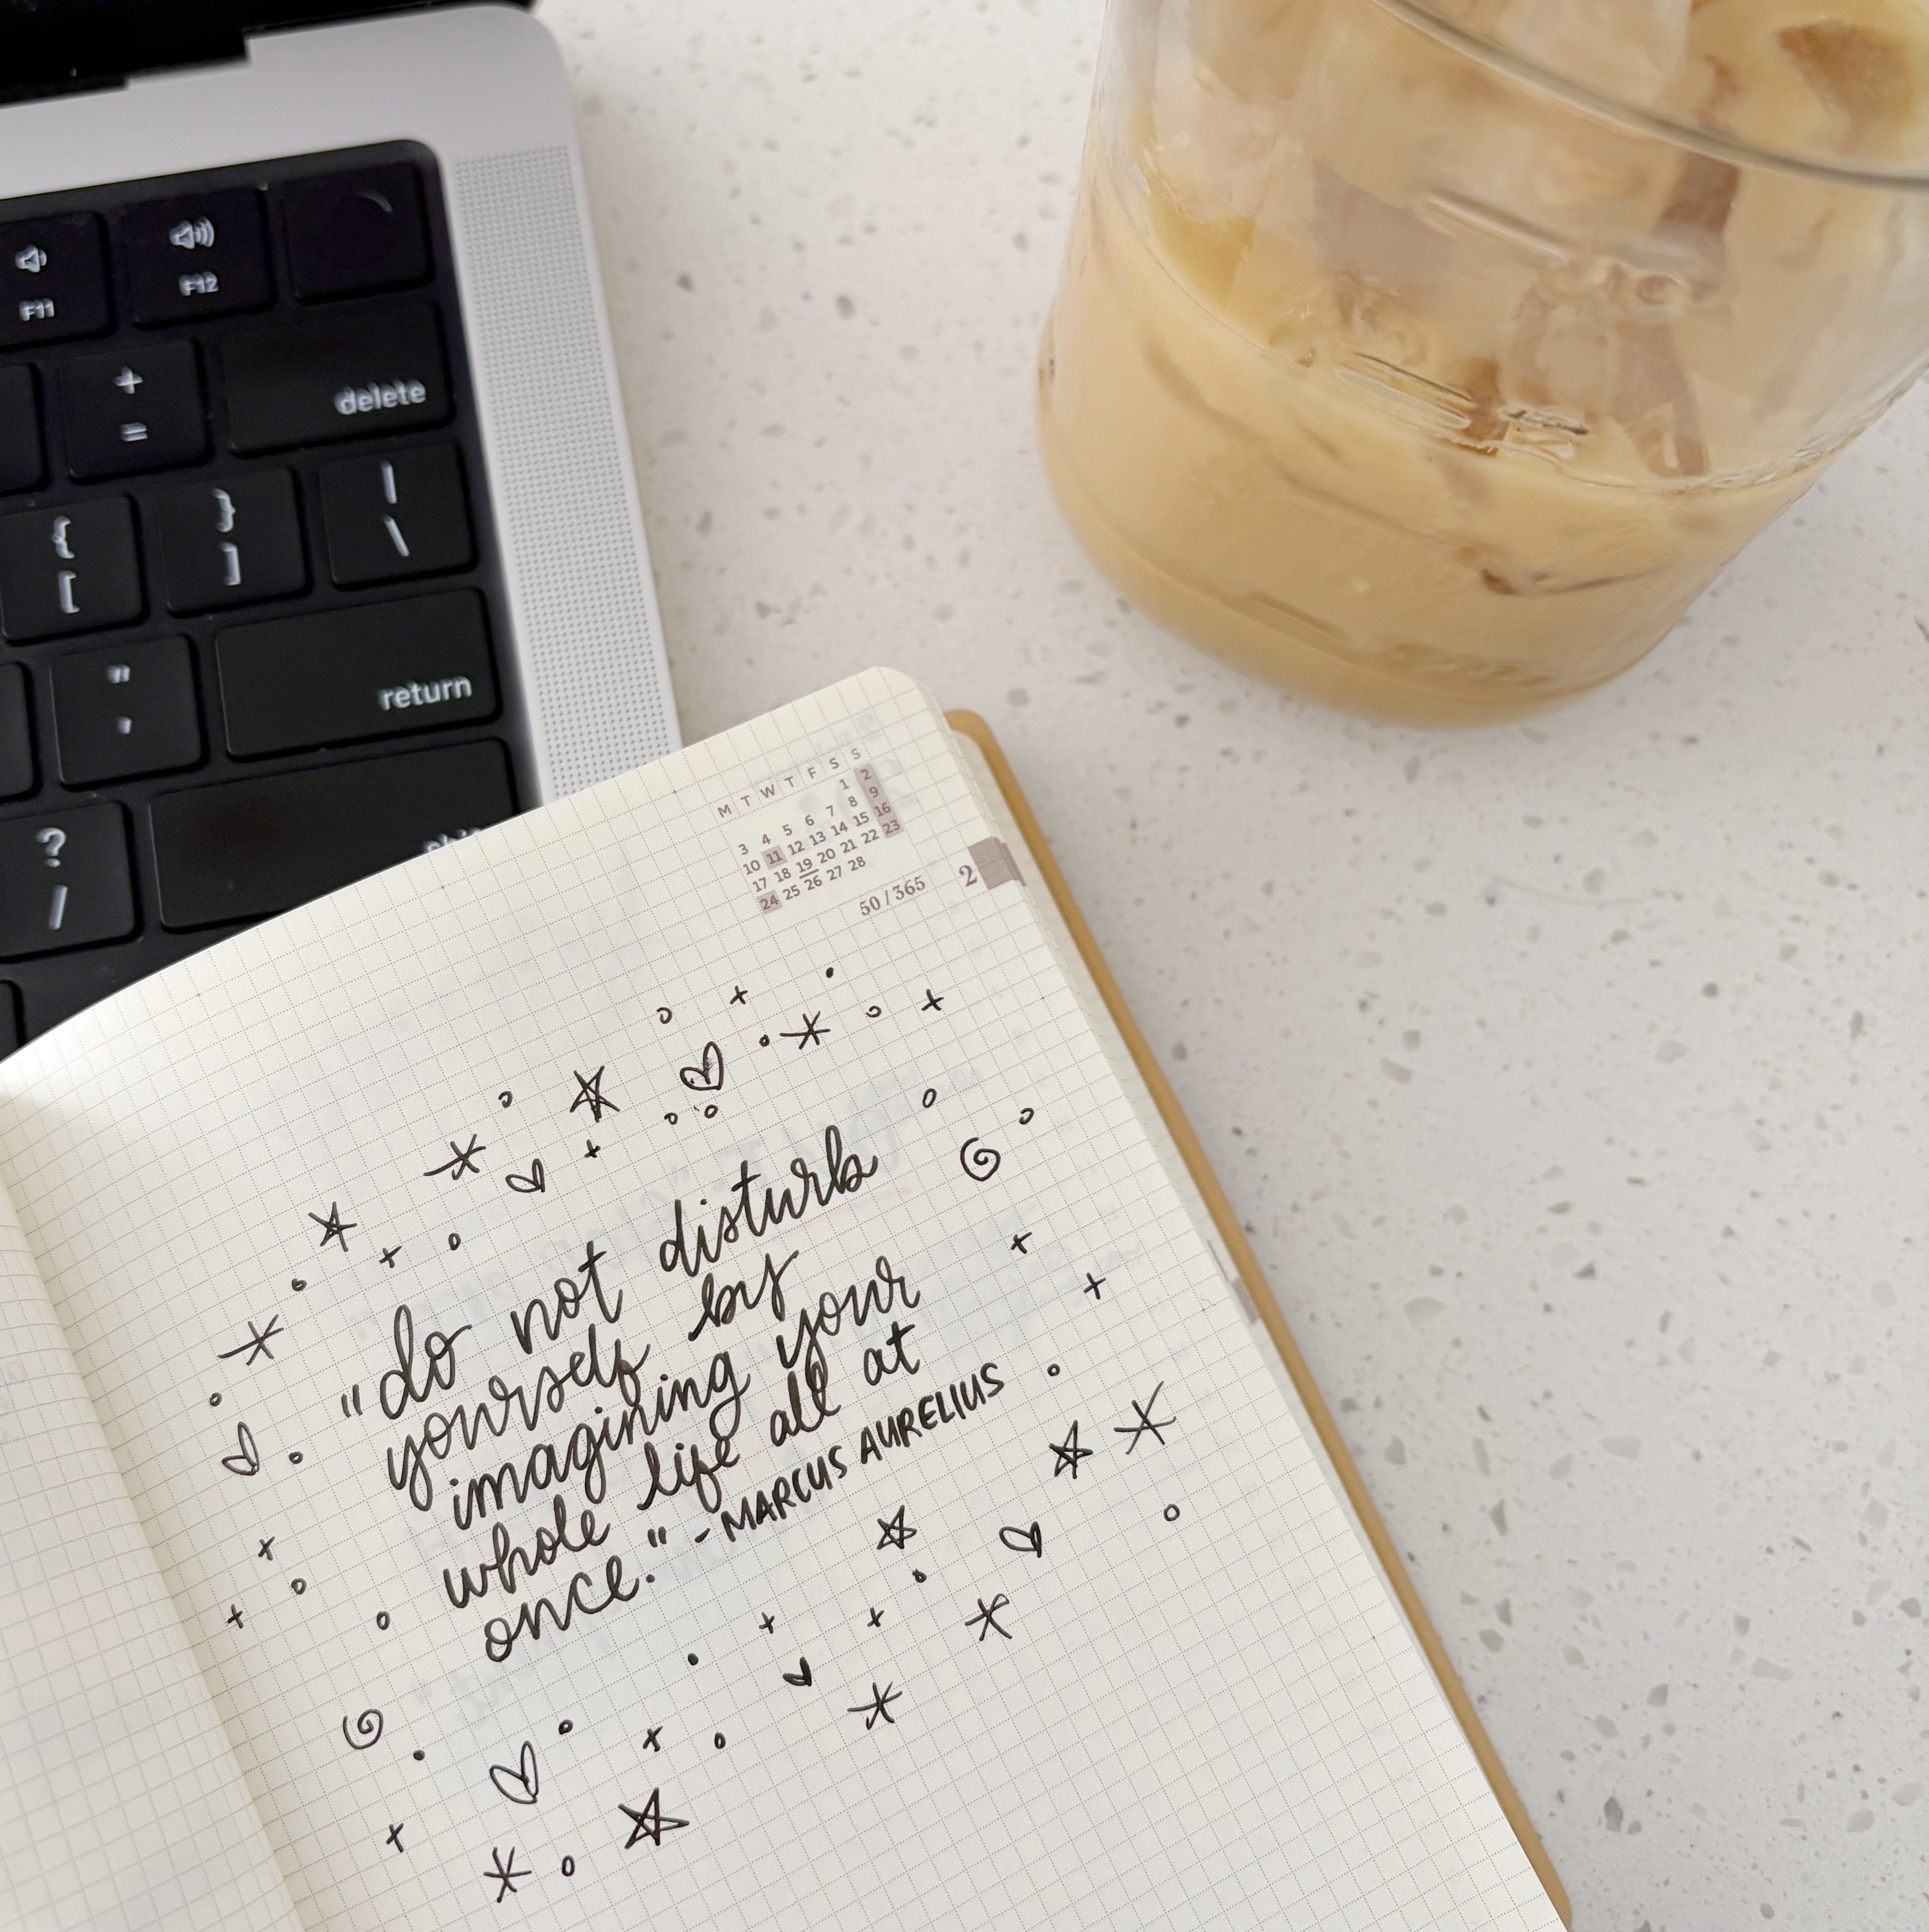 F11
F12
+
=
delete
{
[
}
]
|
\
"
'
return
?
/
M T W T F S S
1 2
3 4 5 6 7 8 9
10 11 12 13 14 15 16
17 18 19 20 21 22 23
24 25 26 27 28
50/365
2
"do not disturb
yourself by
imagining your
whole life all at
once." - MARCUS AURELIUS